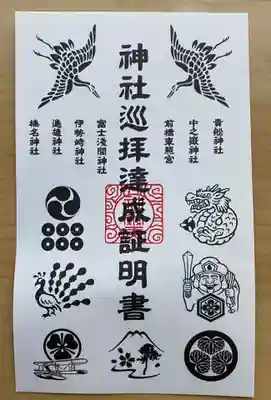 神社巡拝達成証明書
貴船神社
中之嶽神社
前橋東照宮
富士浅間神社
伊勢崎神社
進雄神社
榛名神社